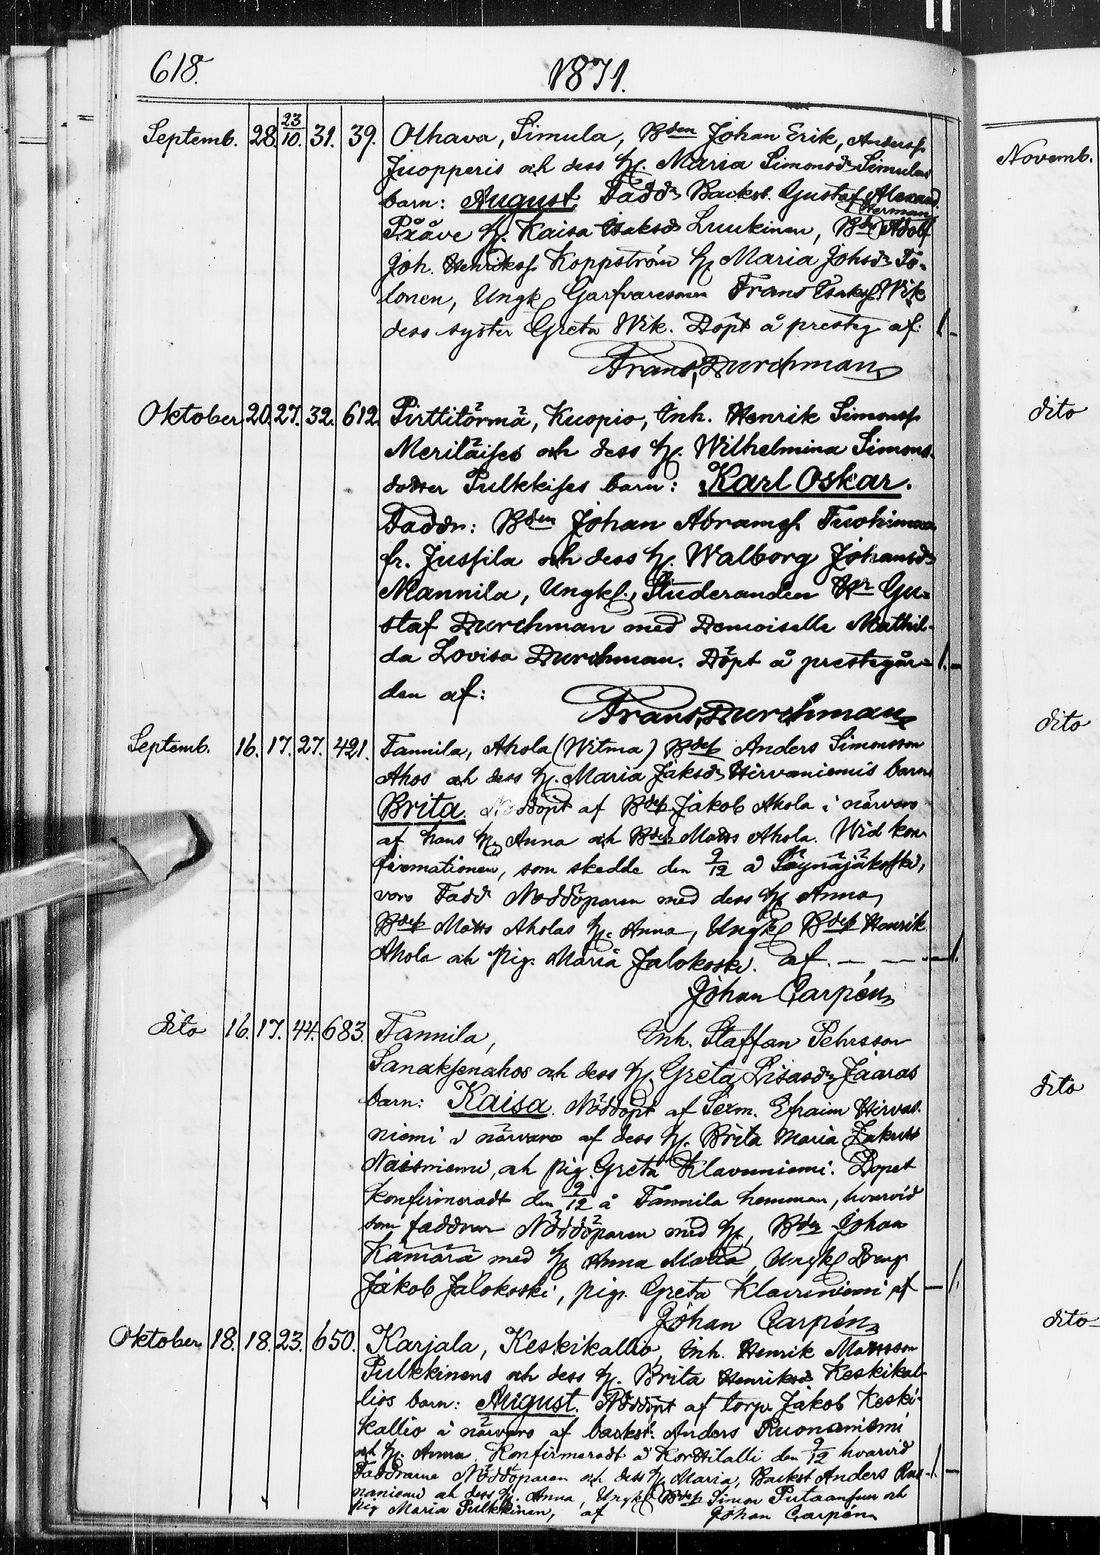 618.
1871.
Septemb. 28. 23/10. 31. 39. Olhava, Simula, Bden Johan Erik, Anderss.
Juopperis och dess h. Maria Simonsdr Simulas
barn: August. Fadd: Backst. Gustaf Alexand
Herman
Pääve h. Kaisa Isaksd Luukinen, Bdr Adolf
Joh. Henrikss. Koppström h. Maria Johsdr To-
lonen, Ungk. Garfvaresonen Frans Isakss. Wik
dess syster Greta Wik. Döpt å presteg af: 1.-
Frans Durchman
Oktober 20. 27. 32. 612. Pirttitörmä, Kuopio, Inh. Henrik Simonss.
Meriläises och dess h. Wilhelmina Simons-
dotter Pulkkises barn: Karl Oskar.
Faddr: Bden Johan Abramss. Tuohimaa
fr. Jussila och dess h. Walborg Johansdr
Mannila, Ungk., Studeranden Hr Gu-
staf Durchman med Demoiselle Mathil-
da Lovisa Durchman. Döpt å prestegår- 1.-
den af:
Frans Durchman
Septemb. 16. 17. 27. 421. Tannila, Ahola (Witma) Bdes Anders Simonsson
Ahos och dess h. Maria Jaksdr Hirvaniemis barn
Brita. Nöddöpt af Bden Jakob Ahola i närvaro
af hans h. Anna och Bden Matts Ahola. Wid kon-
firmationen, som skedde den 9/12 å
voro Fadd Nöddöparen med dess h. Anna,
Bdes Matts Aholas h. Anna, Ungk. Bdes Henrik
Ahola och pig. Maria Jalokoski. af. — — — 1.
Johan Carpén
dito 16. 17. 44. 683. Tannila, Inh. Staffan Pehrsson
Sanaksenahos och dess h. Greta Lisasdr Jääräs
barn: Kaisa. Nöddöpt af Sexm. Efraim Hirvas-
niemi i närvaro af dess h. Brita Maria Jakobs
Naisniemi, och pig. Greta Klaveniemi. Dopet
konfirmeradt den 9/12 å Tannila hemman, hvarvid
som faddrar Nöddöparen med h., Bden Johan
Kämärä med h. Anna Maria, Ungk. Dreng
Jakob Jalokoski, pig. Greta Klaveniemi af — 1.
Johan Carpén
Oktober 18. 18. 23. 650. Karjala, Keskikallio, Inh. Henrik Mattsson
Pulkkinens och dess h. Brita Henriksdr Keskikal-
lios barn: August. Nöddöpt af torp. Jakob Keski-
kallio i närvaro af backst. Anders Ruonaniemi
och h. Anna. Konfirmeradt å Korttilalli den 9/12 hvarvid
Faddrarne Nöddöparen och dess h. Maria, Backst Anders Ruo- 1.-
naniemi och dess h. Anna, Ungk. Bdes Simon Putaansuu och
pig Maria Pulkkinen, af Johan Carpén
Novemb.
dito
dito
dito
dito